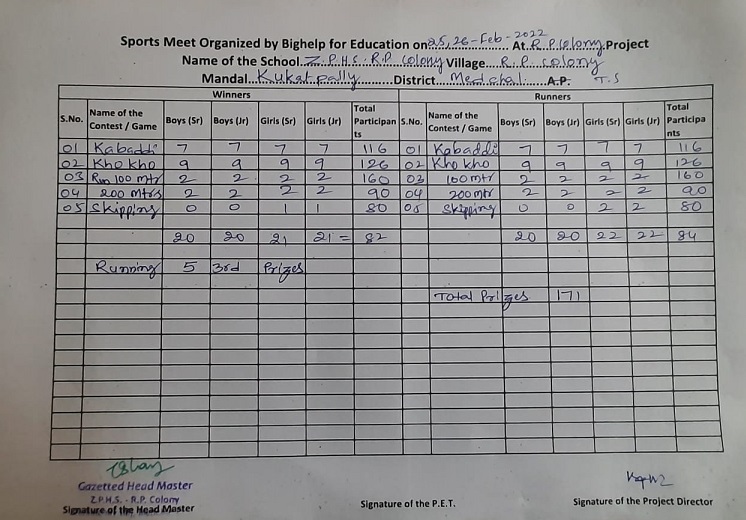 Sports Meet Organized by Bighelp for Education on 25, 26-Feb-2022 At R.P Colony Project
Name of the School Z.P.H.S. R.P Colony Village R.P. colony
Mandal Kukatpally District Medchal A.P. T.S
Winners Runners
S.No. Name of the Contest / Game Boys (Sr) Boys (Jr) Girls (Sr) Girls (Jr) Total Participants S.No. Name of the Contest / Game Boys (Sr) Boys (Jr) Girls (Sr) Girls (Jr) Total Participants
01 Kabaddi 7 7 7 7 116 01 Kabaddi 7 7 7 7 116
02 Kho kho 9 9 9 9 126 02 Kho kho 9 9 9 9 126
03 Run 100 mtr 2 2 2 2 160 03 100 mtr 2 2 2 2 160
04 200 mtrs 2 2 2 2 90 04 200 mtr 2 2 2 2 90
05 Skipping 0 0 1 1 80 05 Skipping 0 0 2 2 80
20 20 21 21 = 82 20 20 22 22 84
Running 5 3rd Prizes
Total Prizes 171
Gazetted Head Master
Z.P.H.S. - R.P. Colony
Signature of the Head Master Signature of the P.E.T. Signature of the Project Director